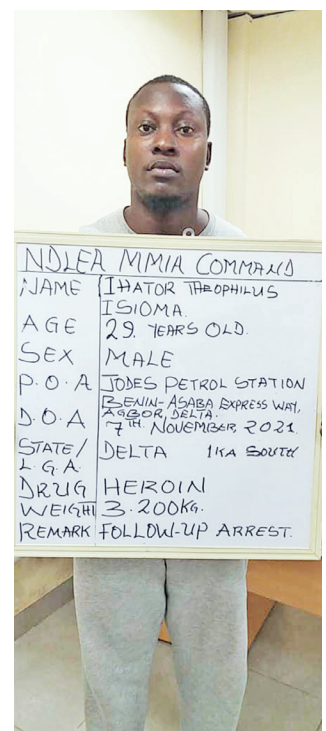 NDLEA MMIA COMMAND
NAME IHATOR THEOPHILUS
ISIOMA.
AGE 29 YEARS OLD.
SEX MALE
P.O.A JODES PETROL STATION
BENIN-ASABA EXPRESS WAY,
AGBOR, DELTA.
D.O.A 7TH. NOVEMBER, 2021.
STATE/ DELTA IKA SOUTH
L.G.A.
DRUG HEROIN
WEIGHT 3.200KG.
REMARK FOLLOW-UP ARREST.